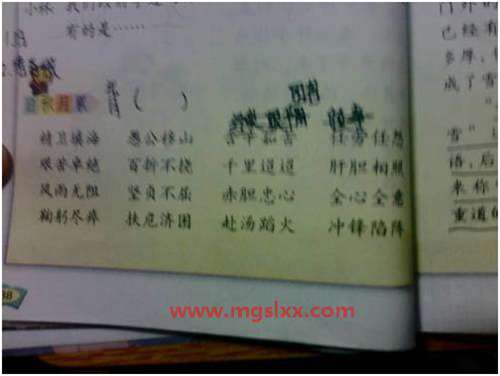 有的是……
日积月累
精卫填海 愚公移山 含辛茹苦 任劳任怨
艰苦卓绝 百折不挠 千里迢迢 肝胆相照
风雨无阻 坚贞不屈 赤胆忠心 全心全意
鞠躬尽瘁 扶危济困 赴汤蹈火 冲锋陷阵
www.mgslxx.com
门外的
已经有
多厚，
成了雪
雪”
语，后
来称
重道的